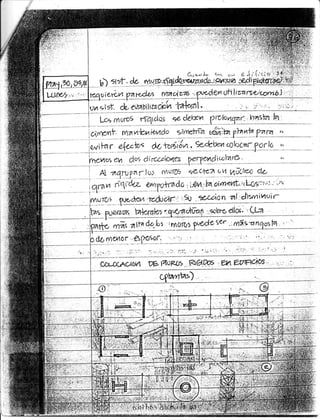 May, 30, 
Lunes
Cuando en un edificio se
b) Sist. de muro rígido
requieren paredes pueden utilizarse como
un sist. de estabilización lateral.
Los muros rígidos se deben prolongar hasta la
ciment. manteniendo simetría en planta para
evitar efectos de torsión. Se deben colocar por lo
menos en dos direcciones perpendiculares.
Al agrupar los muros se crea un núcleo de
gran rigidez empotrado en la ciment. Los
muros pueden reducir su sección al disminuir
las fuerzas laterales que actúan sobre ellos. (La
parte más alta de los muros puede ser más angosta
o de menor espesor.
COLOCACIÓN DE MUROS RÍGIDOS EN EDIFICIOS
(plantas)